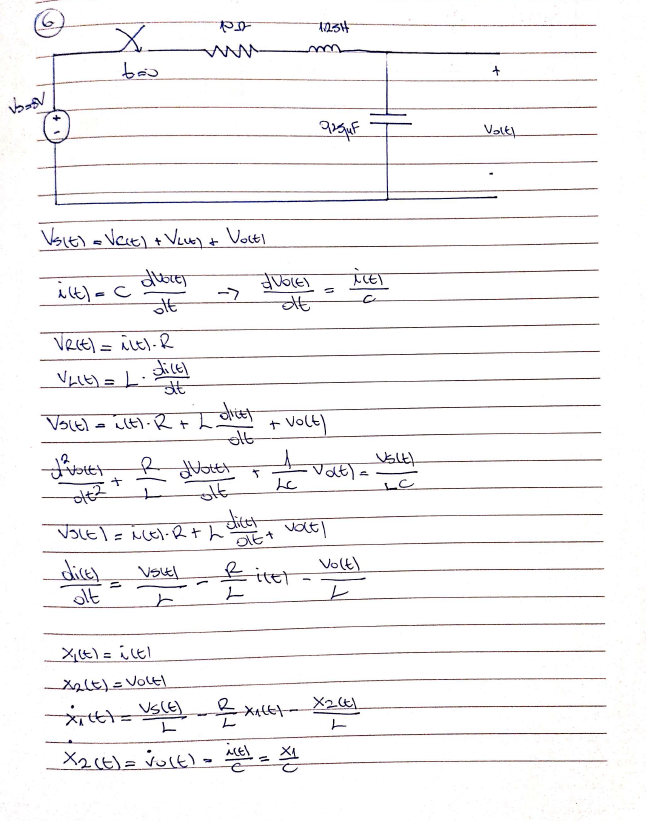 6
1Ω 1.25H
t=0
Vs=5V
+
-
0,25μF
+
Vo(t)
-
Vs(t) = VC(t) + VL(t) + Vo(t)
i(t) = C dVo(t)/dt → dVo(t)/dt = i(t)/C
VR(t) = i(t).R
VL(t) = L. di(t)/dt
Vs(t) = i(t).R + L di(t)/dt + Vo(t)
d²Vo(t)/dt² + R/L dVo(t)/dt + 1/LC Vo(t) = Vs(t)/LC
Vs(t) = i(t).R + L di(t)/dt + Vo(t)
di(t)/dt = Vs(t)/L - R/L i(t) - Vo(t)/L
x₁(t) = i(t)
x₂(t) = Vo(t)
ẋ₁(t) = Vs(t)/L - R/L x₁(t) - x₂(t)/L
ẋ₂(t) = V̇o(t) = i(t)/C = x₁/C